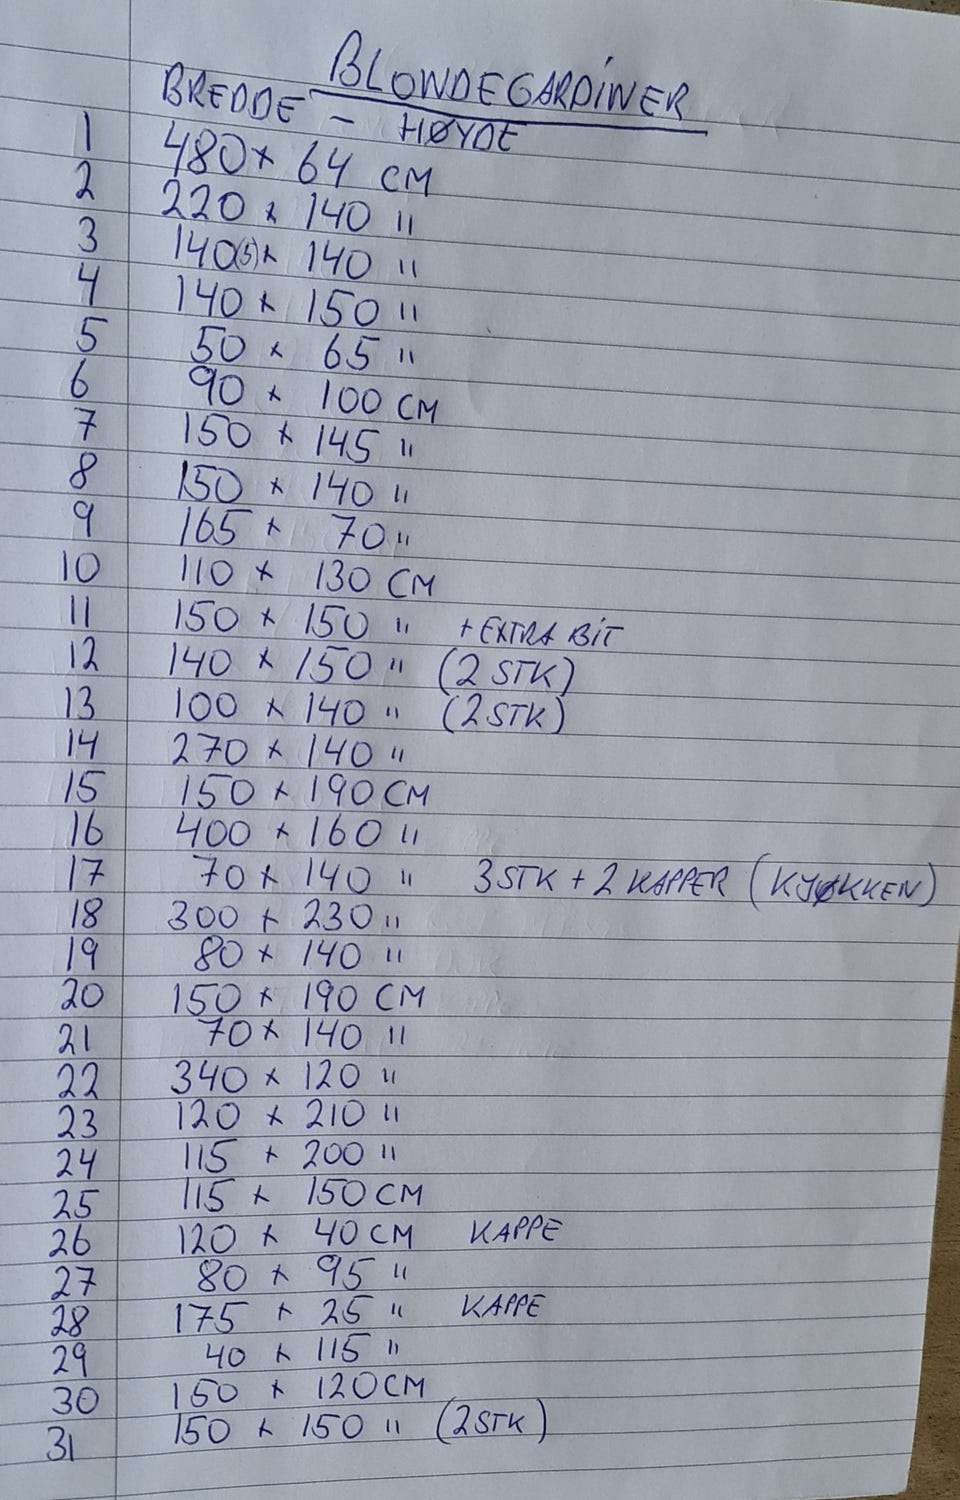 BLONDEGARDINER
BREDDE - HØYDE
1 480 x 64 CM
2 220 x 140 "
3 140(5)x 140 "
4 140 x 150 "
5 50 x 65 "
6 90 x 100 CM
7 150 x 145 "
8 150 x 140 "
9 165 x 70 "
10 110 x 130 CM
11 150 x 150 " + EXTRA BIT
12 140 x 150 " (2 STK)
13 100 x 140 " (2 STK)
14 270 x 140 "
15 150 x 190 CM
16 400 x 160 "
17 70 x 140 " 3 STK + 2 KAPPER (KJØKKEN)
18 300 x 230 "
19 80 x 140 "
20 150 x 190 CM
21 70 x 140 "
22 340 x 120 "
23 120 x 210 "
24 115 x 200 "
25 115 x 150 CM
26 120 x 40 CM KAPPE
27 80 x 95 "
28 175 x 25 " KAPPE
29 40 x 115 "
30 150 x 120 CM
31 150 x 150 " (2 STK)